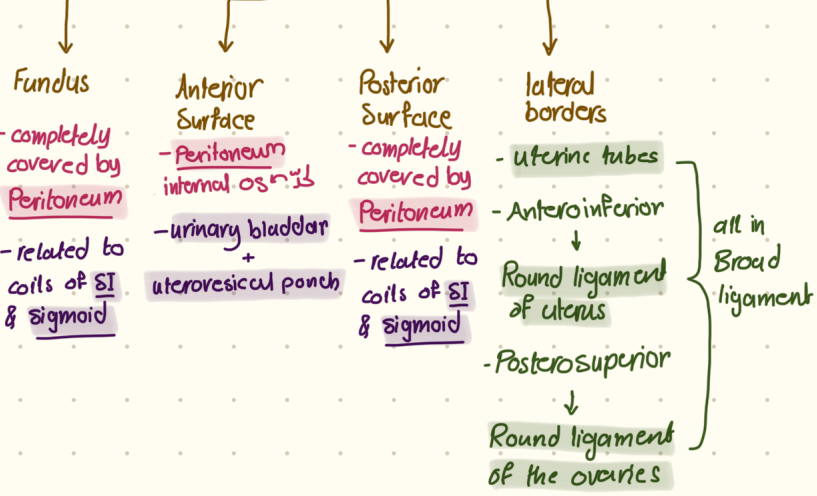 Fundus
- completely
covered by
Peritoneum
- related to
coils of SI
& sigmoid
Anterior
Surface
- Peritoneum
internal os
- urinary bladdar
+
uterovesical pouch
Posterior
Surface
- completely
covered by
Peritoneum
- related to
coils of SI
& sigmoid
lateral
borders
- uterine tubes
- Anteroinferior
↓
Round ligament
of uterus
- Posterosuperior
↓
Round ligament
of the ovaries
all in
Broad
ligament